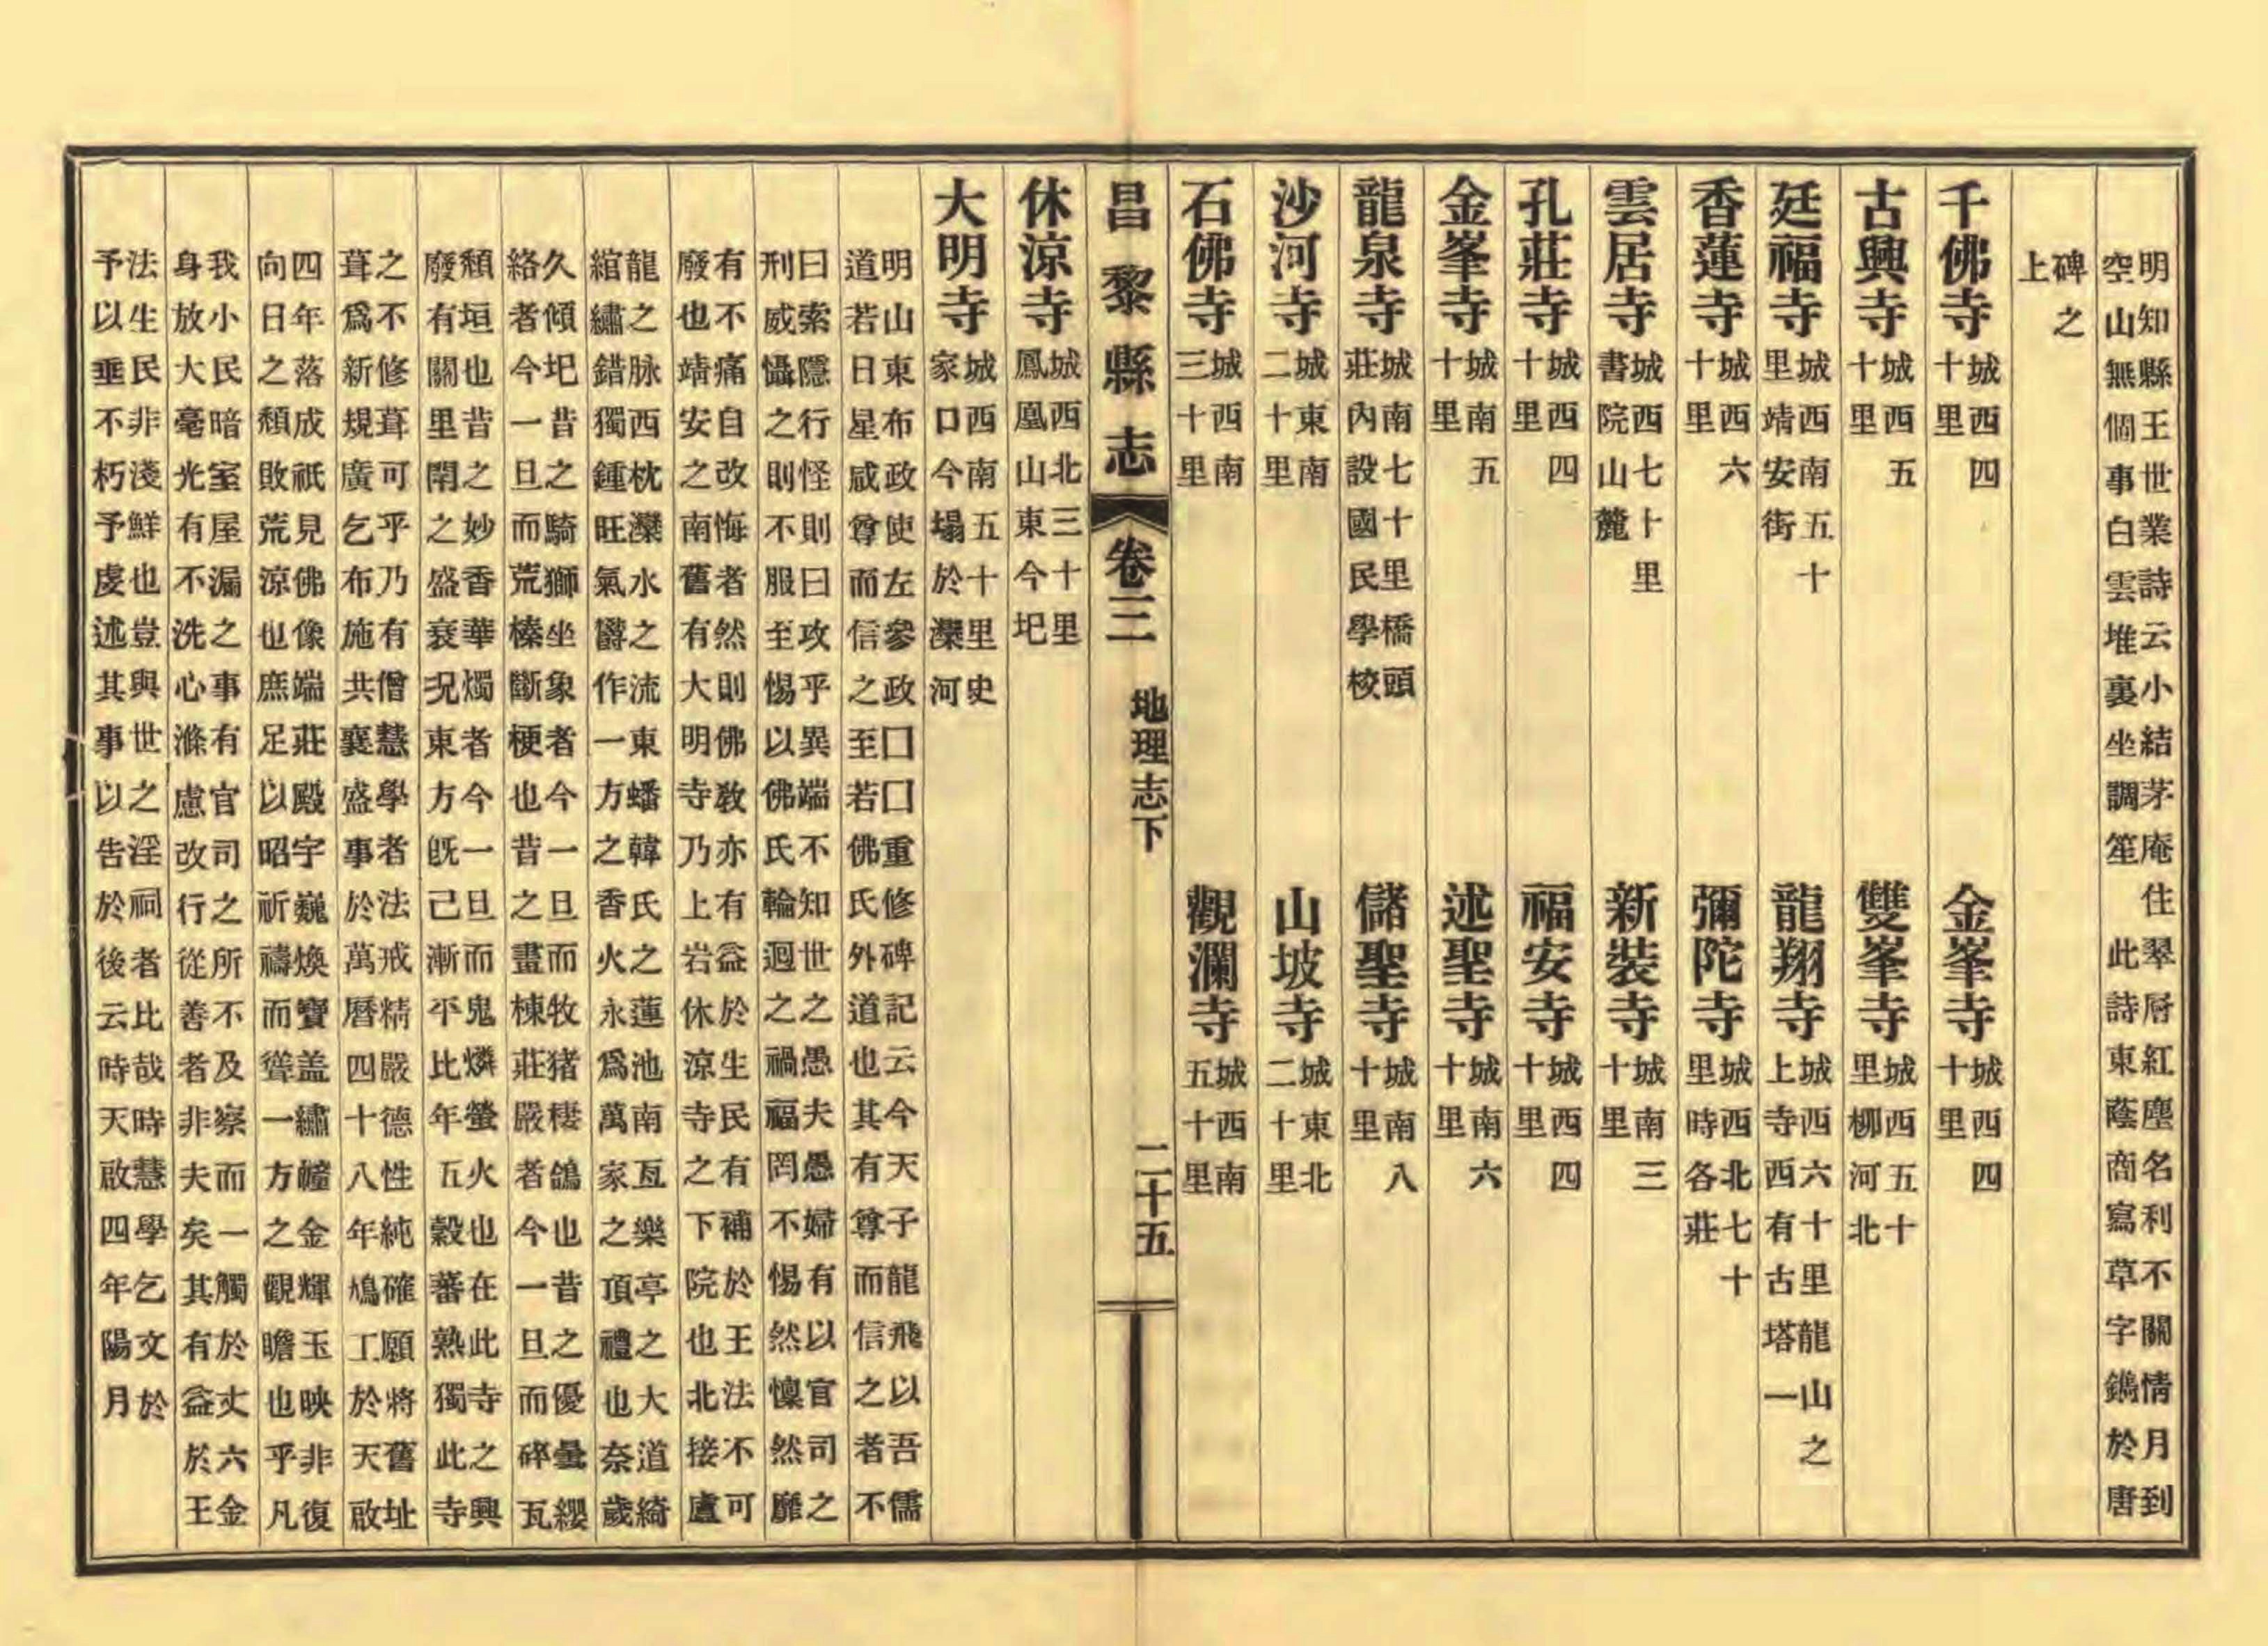 明知縣王世業詩云小結茅庵住翠層紅塵名利不關情月到
空山無個事白雲堆裏坐調笙　此詩東蔭商寫草字鐫於唐
碑之
上
千佛寺城西四十里　金峯寺城西四十里
古興寺城西五十里　雙峯寺城西五十里柳河北
廷福寺城西南五十里靖安街　龍翔寺城西六十里龍山之上寺西有古塔一
香蓮寺城西六十里　彌陀寺城西北七十里時各莊
雲居寺城西七十里書院山麓　新裝寺城南三十里
孔莊寺城西四十里　福安寺城西四十里
金峯寺城南五十里　述聖寺城南六十里
龍泉寺城南七十里橋頭莊內設國民學校　儲聖寺城南八十里
沙河寺城東南二十里　山坡寺城東北二十里
石佛寺城西南三十里　觀瀾寺城西南五十里
昌黎縣志　卷三　地理志下　二十五
休涼寺城西北三十里鳳凰山東今圯
大明寺城西南五十里史家口今塌於灤河
明山東布政使左參政囗囗重修碑記云今天子龍飛以吾儒
道若日星咸尊而信之至若佛氏外道也其有尊而信之者不
曰索隱行怪則曰攻乎異端不知世之愚夫愚婦有以官司之
刑威懾之則不服至惕以佛氏輪迴之禍福罔不惕然懍然靡
有不痛自改悔者然則佛教亦有益於生民有補於王法不可
廢也靖安之南舊有大明寺乃上岩休涼寺之下院也北接盧
龍之脉西枕灤水之流東蟠韓氏之蓮池南亙樂亭之大道綺
綰繡錯獨鍾旺氣欝作一方之香火永爲萬家之頂禮也奈歲
久傾圯昔之騎獅坐象者今一旦而牧猪棲鴿也昔之優曇纓
絡者今一旦而荒榛斷梗也今昔之畫棟莊嚴者今一旦而碎瓦
頹垣也昔之妙香華燭者今一旦而鬼燐螢火也在此寺之興
廢有關里閈之盛衰況東方旣己漸平比年五穀蕃熟獨此寺
之不修葺可乎乃有僧慧學者法戒精嚴德性純確願將舊址
葺爲新規廣乞布施共襄盛事於萬曆四十八年鳩工於天啟
四年落成祇見佛像端莊殿宇巍煥寶盖繡幢金輝玉映非復
向日之頹敗荒涼也庶足以昭祈禱而聳一方之觀瞻也乎凡
我小民暗室屋漏之事有官司之所不及察而一觸於丈六金
身放大毫光有不洗心滌慮改行從善者非夫矣其有益於王
法生民非淺鮮也豈與世之淫祠者比哉時慧學乞文於
予以垂不朽予虔述其事以告於後云時天啟四年陽月